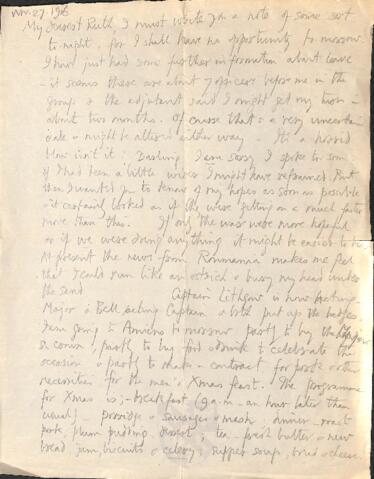 Nov. 27 1916
My Dearest Ruth I must write you a note of some sort
to-night, for I shall have no opportunity to-morrow.
I have just had some further information about leave
- it seems there are about 7 officers before me in the
group & the adjutant said I might get my turn in
about two months. Of course that's a very uncertain
date & might be altered either way - It's a horrid
blow isn't it? Darling I am sorry I spoke to soon
if I had been a little wiser I might have refrained. But
then I wanted you to know of my hopes as soon as possible
& it certainly looked as if they were getting on a much faster
more than this. If only the war were more hopeful
or if we were doing anything it might be easier to be
At present the news from Roumania makes me feel
that I could run like an ostrich & bury my head under
the sand Captain Lithgow is now Acting-
Major & Bell acting Captain & both put up the badges.
I am going to Amiens to-morrow partly to buy the
& crown, partly to buy food & drink to celebrate the
occasion & partly to make a contract for pork & other
necessities for the men's Xmas feast. The programme
for Xmas is; - breakfast (9 a.m. - an hour later than
usual) - porridge & sausages & mash; dinner - roast
pork, plum pudding, dessert; tea - fresh butter & new
bread, jam, biscuits & celery; supper soup, bread & cheese.